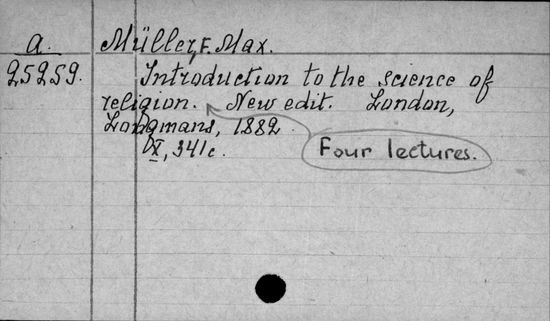 a. Müller, F. Max.
25259. Introduction to the science of
religion. New edit. London,
Longmans, 1882.
IX, 341c.
Four lectures.